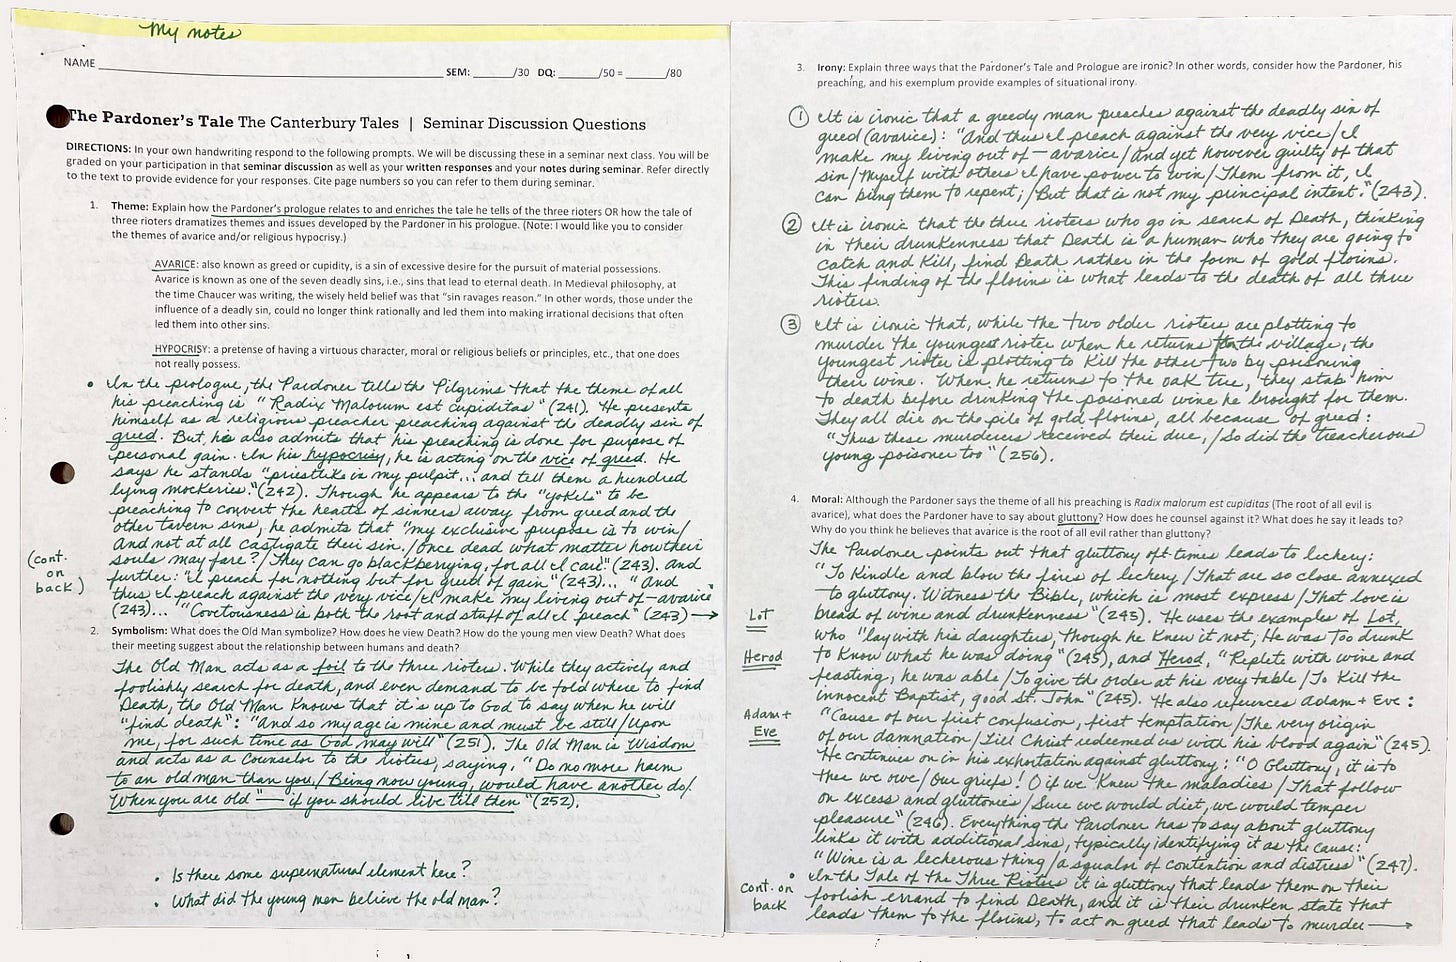 My notes
NAME
SEM: ______/30 DQ: ______/50 = ______/80
The Pardoner's Tale The Canterbury Tales | Seminar Discussion Questions
DIRECTIONS: In your own handwriting respond to the following prompts. We will be discussing these in a seminar next class. You will be
graded on your participation in that seminar discussion as well as your written responses and your notes during seminar. Refer directly
to the text to provide evidence for your responses. Cite page numbers so you can refer to them during seminar.
1. Theme: Explain how the Pardoner's prologue relates to and enriches the tale he tells of the three rioters OR how the tale of
three rioters dramatizes themes and issues developed by the Pardoner in his prologue. (Note: I would like you to consider
the themes of avarice and/or religious hypocrisy.)
AVARICE: also known as greed or cupidity, is a sin of excessive desire for the pursuit of material possessions.
Avarice is known as one of the seven deadly sins, i.e., sins that lead to eternal death. In Medieval philosophy, at
the time Chaucer was writing, the wisely held belief was that "sin ravages reason." In other words, those under the
influence of a deadly sin, could no longer think rationally and led them into making irrational decisions that often
led them into other sins.
HYPOCRISY: a pretense of having a virtuous character, moral or religious beliefs or principles, etc., that one does
not really possess.
• In the prologue, the Pardoner tells the Pilgrims that the theme of all
his preaching is "Radix Malorum est cupiditas" (241). He presents
himself as a religious preacher preaching against the deadly sin of
greed. But, he also admits that his preaching is done for purpose of
personal gain. In his hypocrisy, he is acting on the vice of greed. He
says he stands "priestlike in my pulpit... and tell them a hundred
lying mockeries." (242). Though he appears to the "yokels" to be
preaching to convert the hearts of sinners away from greed and the
other tavern sins, he admits that "my exclusive purpose is to win/
And not at all castigate their sin./Once dead what matter how their
souls may fare?/They can go blackberrying, for all I care" (243). And
further: "I preach for nothing but for greed of gain" (243)... "And
thus I preach against the very vice/I make my living out of—avarice"
(243)... "Covetousness is both the root and stuff of all I preach" (243) →
(cont. on back)
2. Symbolism: What does the Old Man symbolize? How does he view Death? How do the young men view Death? What does
their meeting suggest about the relationship between humans and death?
The Old Man acts as a foil to the three rioters. While they actively and
foolishly search for death, and even demand to be told where to find
Death, the Old Man knows that it's up to God to say when he will
"find death": "And so my age is mine and must be still/Upon
me, for such time as God may will" (251). The Old Man is Wisdom
and acts as a Counselor to the rioters, saying, "Do no more harm
to an old man than you,/Being now young, would have another do/
When you are old"— if you should live till then" (252).
• Is there some supernatural element here?
• What did the young men believe the old man?
3. Irony: Explain three ways that the Pardoner's Tale and Prologue are ironic? In other words, consider how the Pardoner, his
preaching, and his exemplum provide examples of situational irony.
① It is ironic that a greedy man preaches against the deadly sin of
greed (avarice): "And thus I preach against the very vice/I
make my living out of — avarice/And yet however guilty of that
sin/Myself with others I have power to win/Them from it, I
can bring them to repent;/But that is not my principal intent." (243).
② It is ironic that the three rioters who go in search of Death, thinking
in their drunkenness that Death is a human who they are going to
catch and kill, find Death rather in the form of gold florins.
This finding of the florins is what leads to the death of all three
rioters.
③ It is ironic that, while the two older rioters are plotting to
murder the youngest rioter when he returns the village, the
youngest rioter is plotting to kill the other two by poisoning
their wine. When he returns to the oak tree, they stab him
to death before drinking the poisoned wine he brought for them.
They all die on the pile of gold florins, all because of greed:
"Thus these murderers received their due,/So did the treacherous
young poisoner too" (256).
4. Moral: Although the Pardoner says the theme of all his preaching is Radix malorum est cupiditas (The root of all evil is
avarice), what does the Pardoner have to say about gluttony? How does he counsel against it? What does he say it leads to?
Why do you think he believes that avarice is the root of all evil rather than gluttony?
The Pardoner points out that gluttony oft-times leads to lechery:
"To kindle and blow the fires of lechery/That are so close annexed
to gluttony. Witness the Bible, which is most express/That love is
bread of wine and drunkenness" (245). He uses the examples of Lot,
who "lay with his daughters, though he knew it not; He was too drunk
to know what he was doing" (245), and Herod, "Replete with wine and
feasting, he was able/To give the order at his very table/To kill the
innocent Baptist, good St. John" (245). He also references Adam + Eve:
"Cause of our first confusion, first temptation/The very origin
of our damnation/Till Christ redeemed us with his blood again" (245).
He continues on in his exhortation against gluttony: "O Gluttony, it is to
thee we owe/Our griefs! O if we knew the maladies/That follow
on excess and gluttonies/Sure we would diet, we would temper
pleasure" (246). Everything the Pardoner has to say about gluttony
links it with additional sins, typically identifying it as the cause:
"Wine is a lecherous thing/a squalor of contention and distress" (247).
• In the Tale of the Three Rioters it is gluttony that leads them on their
foolish errand to find Death, and it is their drunken state that
leads them to the florins, to act on greed that leads to murder →
Lot
Herod
Adam +
Eve
Cont. on
back